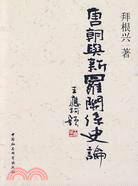 拜根兴 著
唐朝與新羅關係史論
中国社会科学出版社